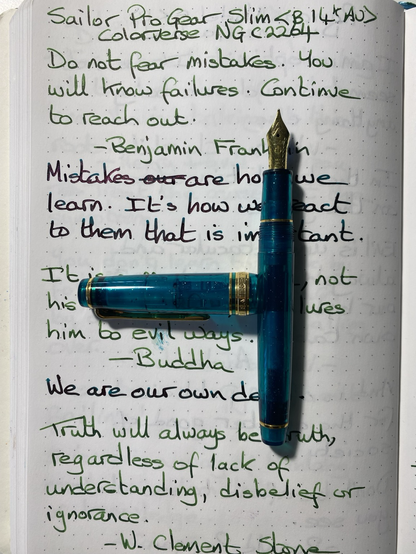 Sailor Pro Gear Slim <B, 14k AU>
Colorverse NGC 2264
Do not fear mistakes. You
will know failures. Continue
to reach out.
-Benjamin Franklin
Mistakes our are how we
learn. It's how we react
to them that is important.
It is , not
his
him to evil ways.
-Buddha
We are our own
Truth will always be truth,
regardless of lack of
understanding, disbelief or
ignorance.
-W. Clement Stone